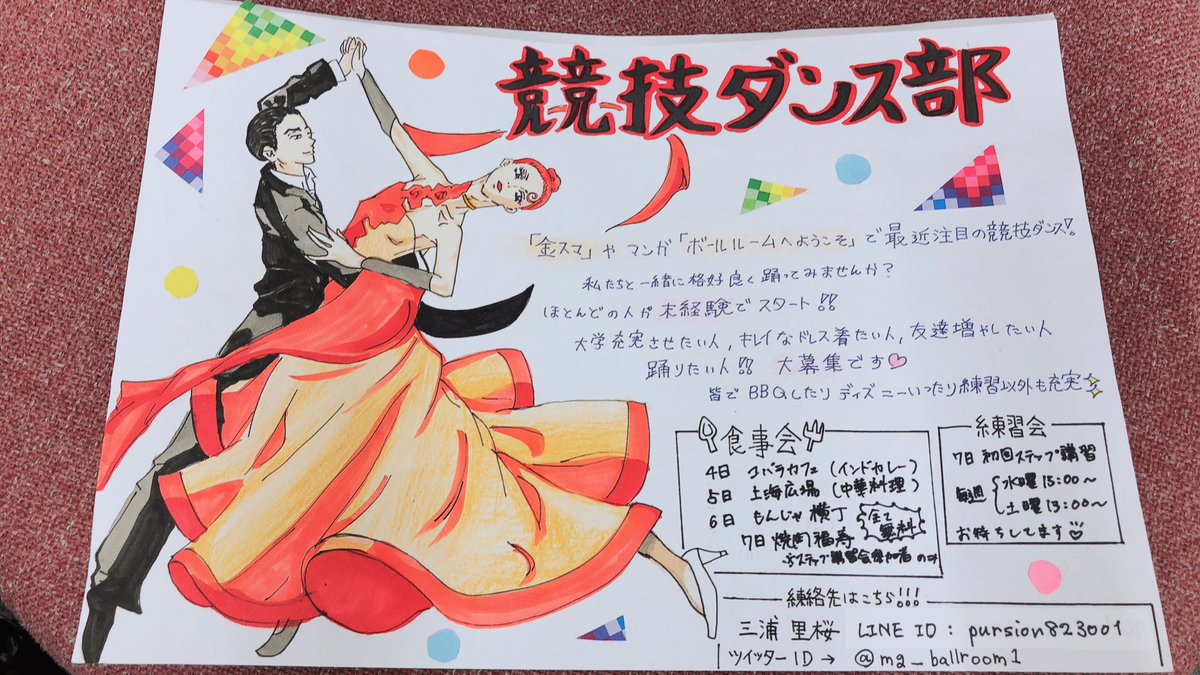 競技ダンス部
「金スマ」や マンガ「ボールルームへようこそ」で最近注目の競技ダンス!
私たちと一緒に格好良く踊ってみませんか？
ほとんどの人が未経験でスタート!!
大学充実させたい人,キレイなドレス着たい人,友達増やしたい人
踊りたい人!! 大募集です♡
皆で BBQしたり ディズニーいったり練習以外も充実
食事会
4日 コバラカフェ (インドカレー)
5日 上海広場 (中華料理)
6日 もんじゃ横丁
全て無料
7日 焼肉福寿
ステップ講習会参加者のみ
練習会
7日 初回ステップ講習
毎週 水曜 15:00〜
土曜 13:00〜
お待ちしてます♡
連絡先はこちら!!!
三浦 里桜 LINE ID : pursion823001
ツイッター ID → @mg_ballroom1